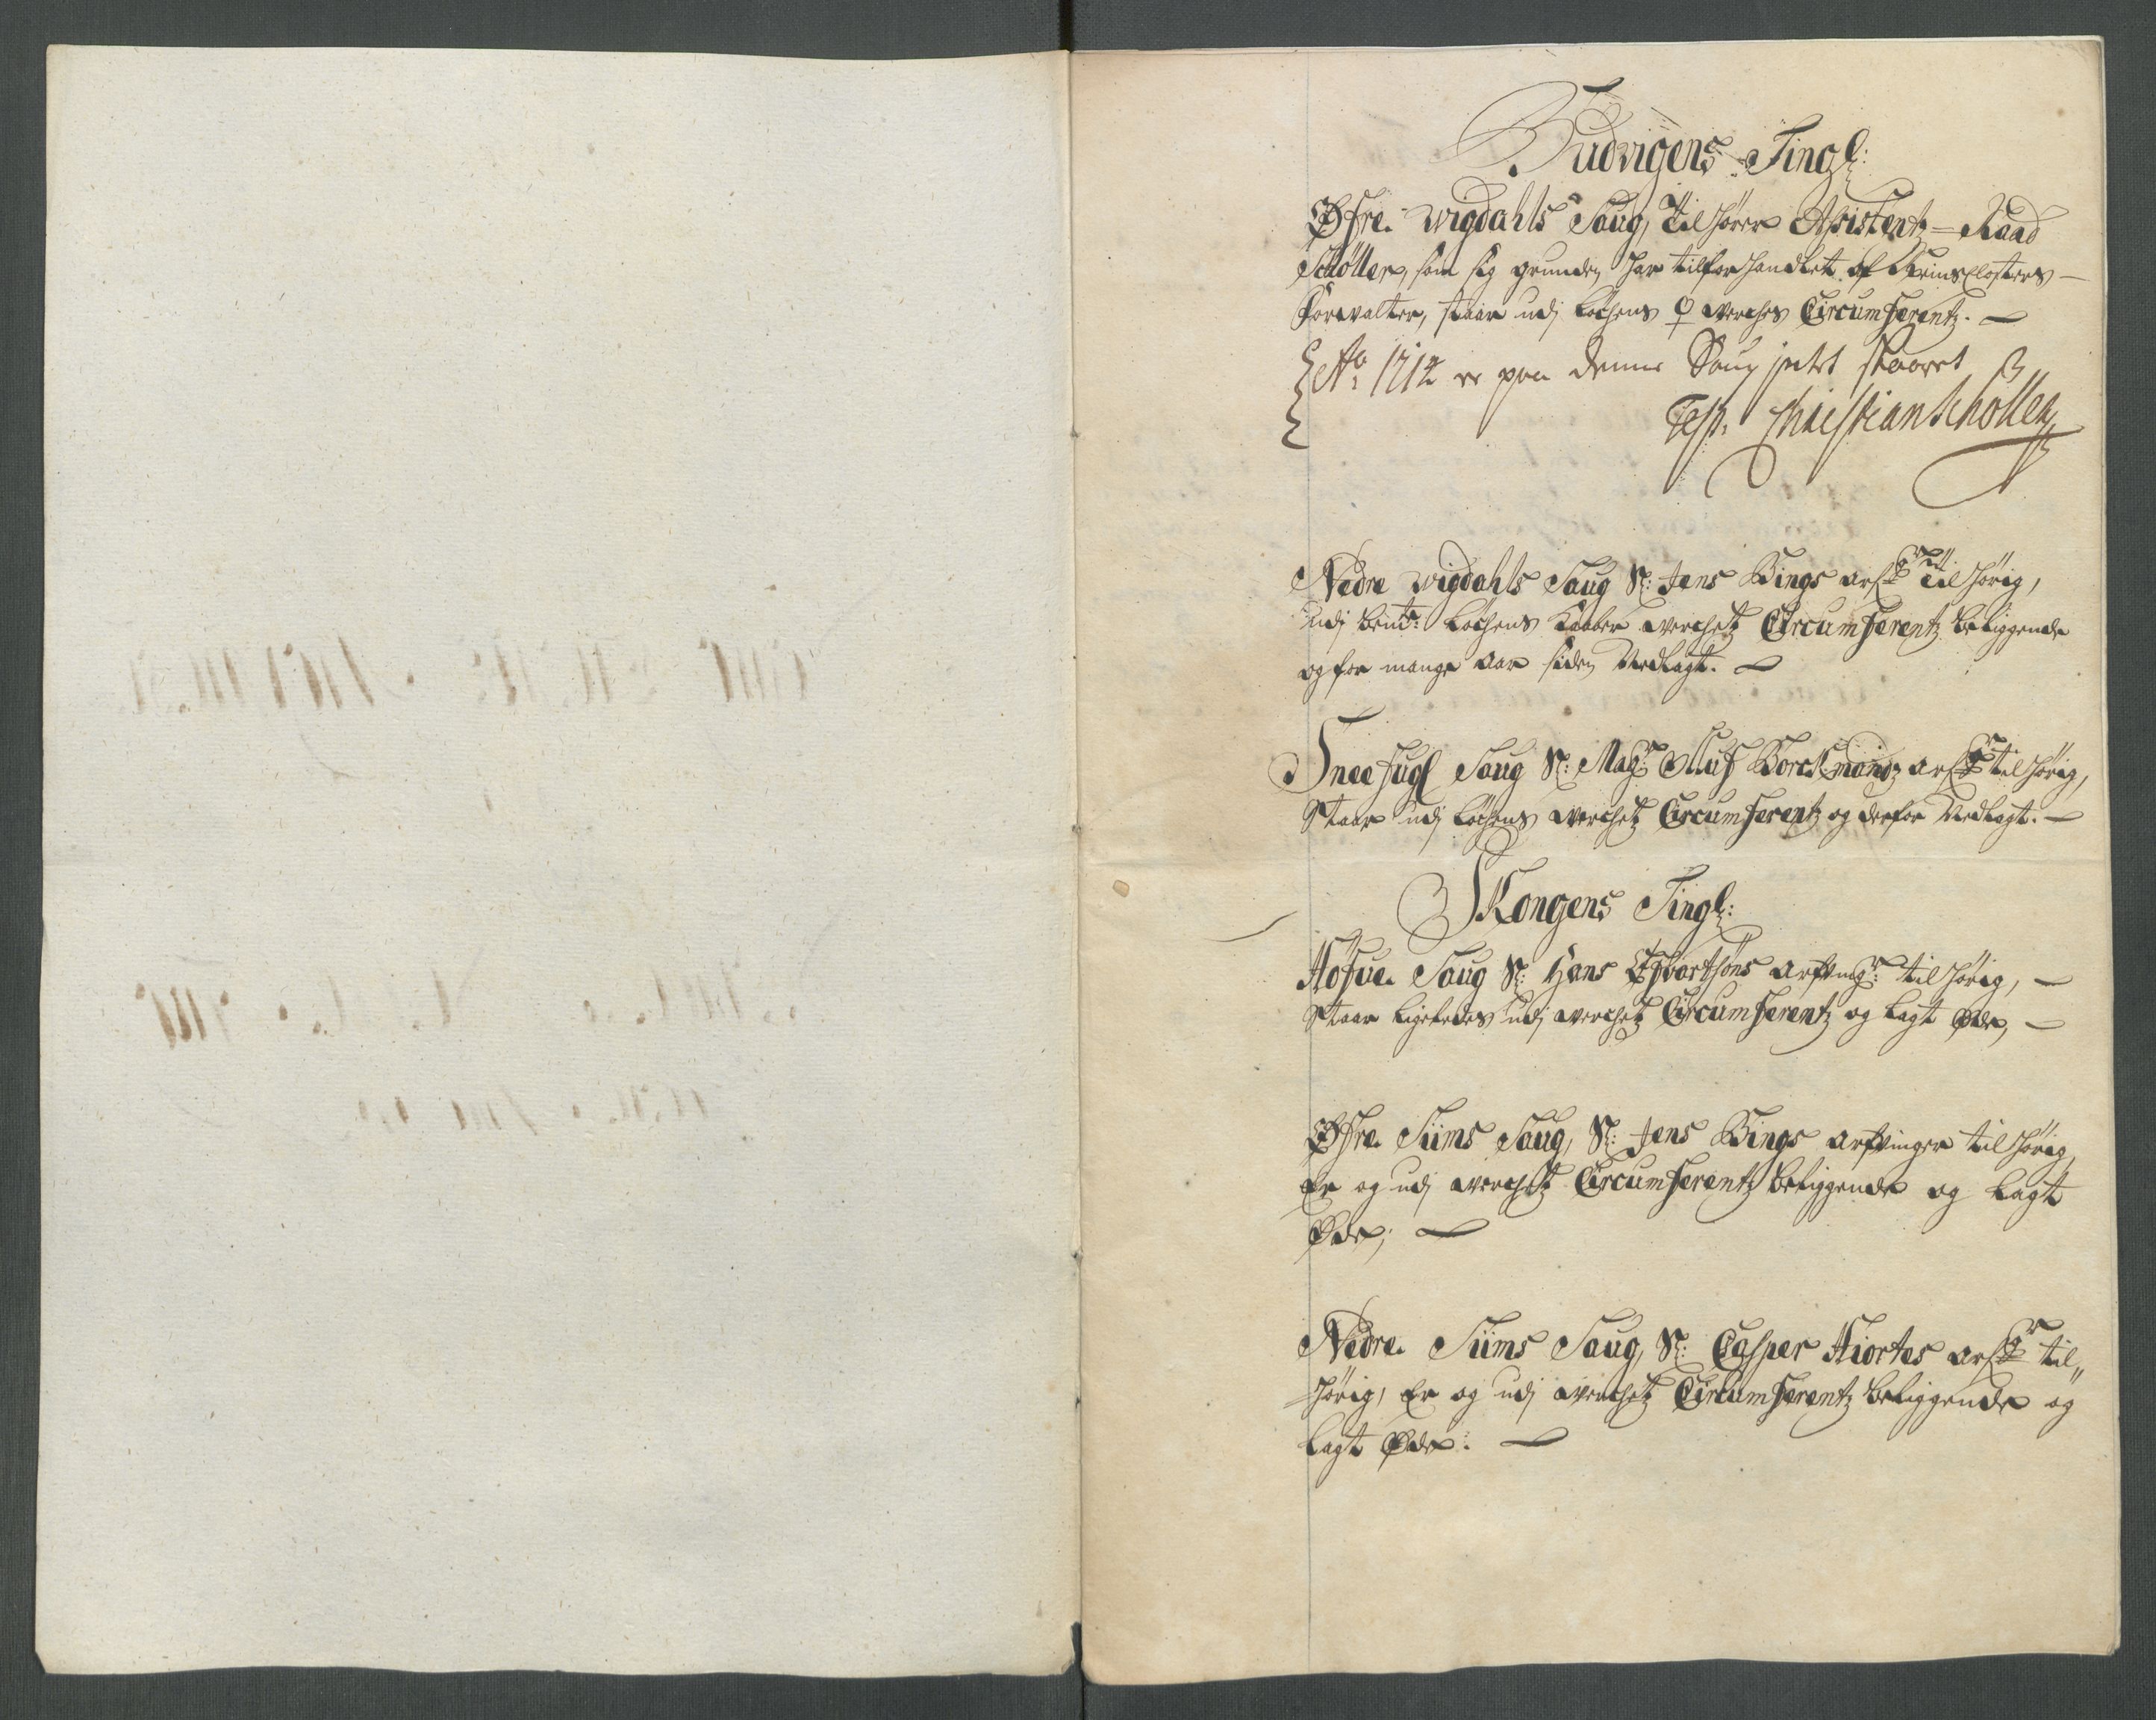 Budvigens Tingl:
Øfre Wigdahls Saug, Tilhører Assistentz-Raad
Schøller, som sig grunden har tilforhandlet af Reins Closters
Forvalter, staar udj Løchens ♀ Werches Circumferentz.
Ao 1712 er paa denne Saug intet skaaret
Test. Christian Schøller
Nedre Wigdahls Saug Sl: Jens Bings arfgr Tilhørig,
udj bemte Løchens Kaaber Werchetz Circumferentz beliggende
og for mange aar siden Nedlagt.
Sneefugl Saug Sl: Magr Oluf Borchmandz arfgr tilhørig,
Staar udj Løchens Werchetz Circumferentz og derfor Nedlagt.
Skongens Tingl:
Høfue Saug Sl: Hans Efvertsøns arfvingr: tilhørig,
Staar ligeledes udj Werchetz Circumferentz og lagt Øde,
Øfre Siims Saug, Sl: Jens Bings arfvinger tilhørig,
Er og udj Werchetz Circumferentz beliggende og lagt
Øde;
Nedre Siims Saug, Sl: Casper Hiortes arfgr til,,
hørig, Er og udj Werchetz Circumferentz beliggende og
lagt Øde.